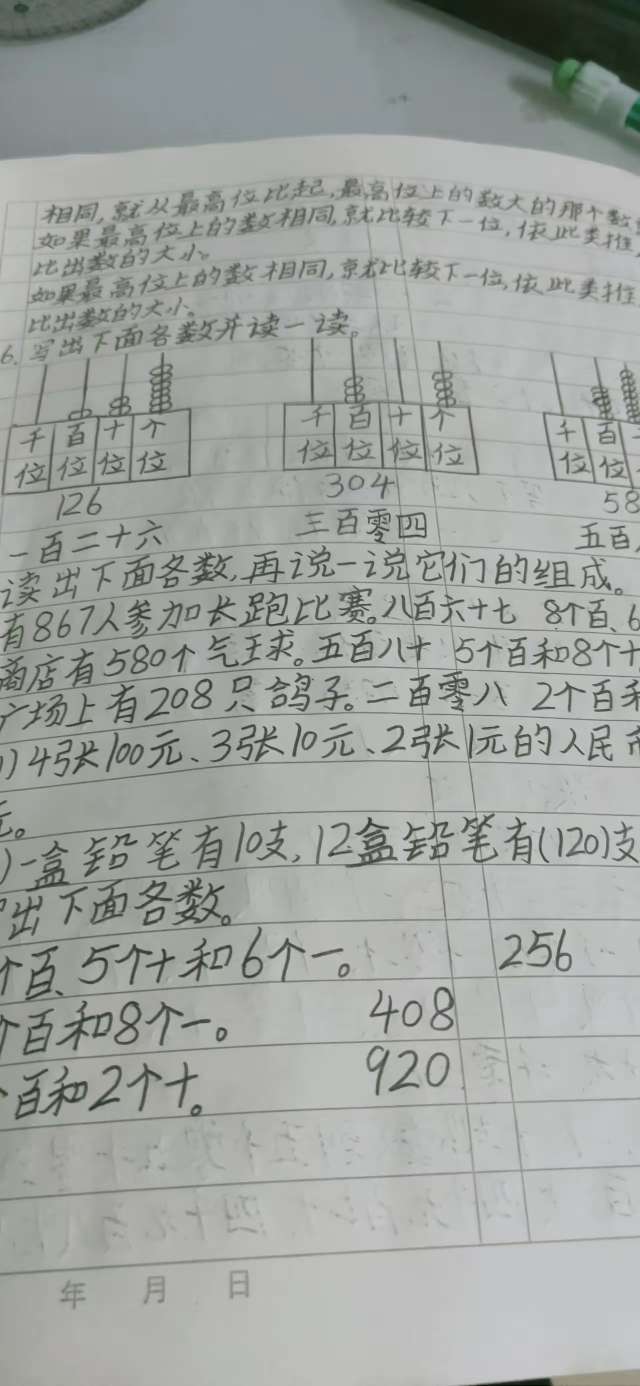 相同,就从最高位比起,最高位上的数大的那个数
如果最高位上的数相同,就比较下一位,依此类推,
比出数的大小。
如果最高位上的数相同,就比较下一位,依此类推
比出数的大小。
6. 写出下面各数并读一读。
千位 百位 十位 个位 千位 百位 十位 个位 千位 百位
126 304 58
一百二十六 三百零四 五百
读出下面各数,再说一说它们的组成。
有867人参加长跑比赛。八百六十七 8个百、6
商店有580个气球。五百八十 5个百和8个十
广场上有208只鸽子。二百零八 2个百和
1)4张100元、3张10元、2张1元的人民币
元。
)一盒铅笔有10支,12盒铅笔有(120)支
出下面各数。
个百、5个十和6个一。 256
个百和8个一。 408
百和2个十。 920
年 月 日